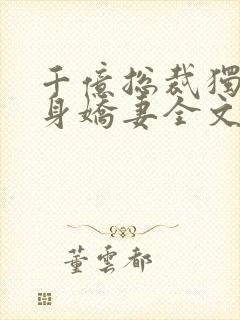 千億總裁獨
身嬌妻全文
董雲都